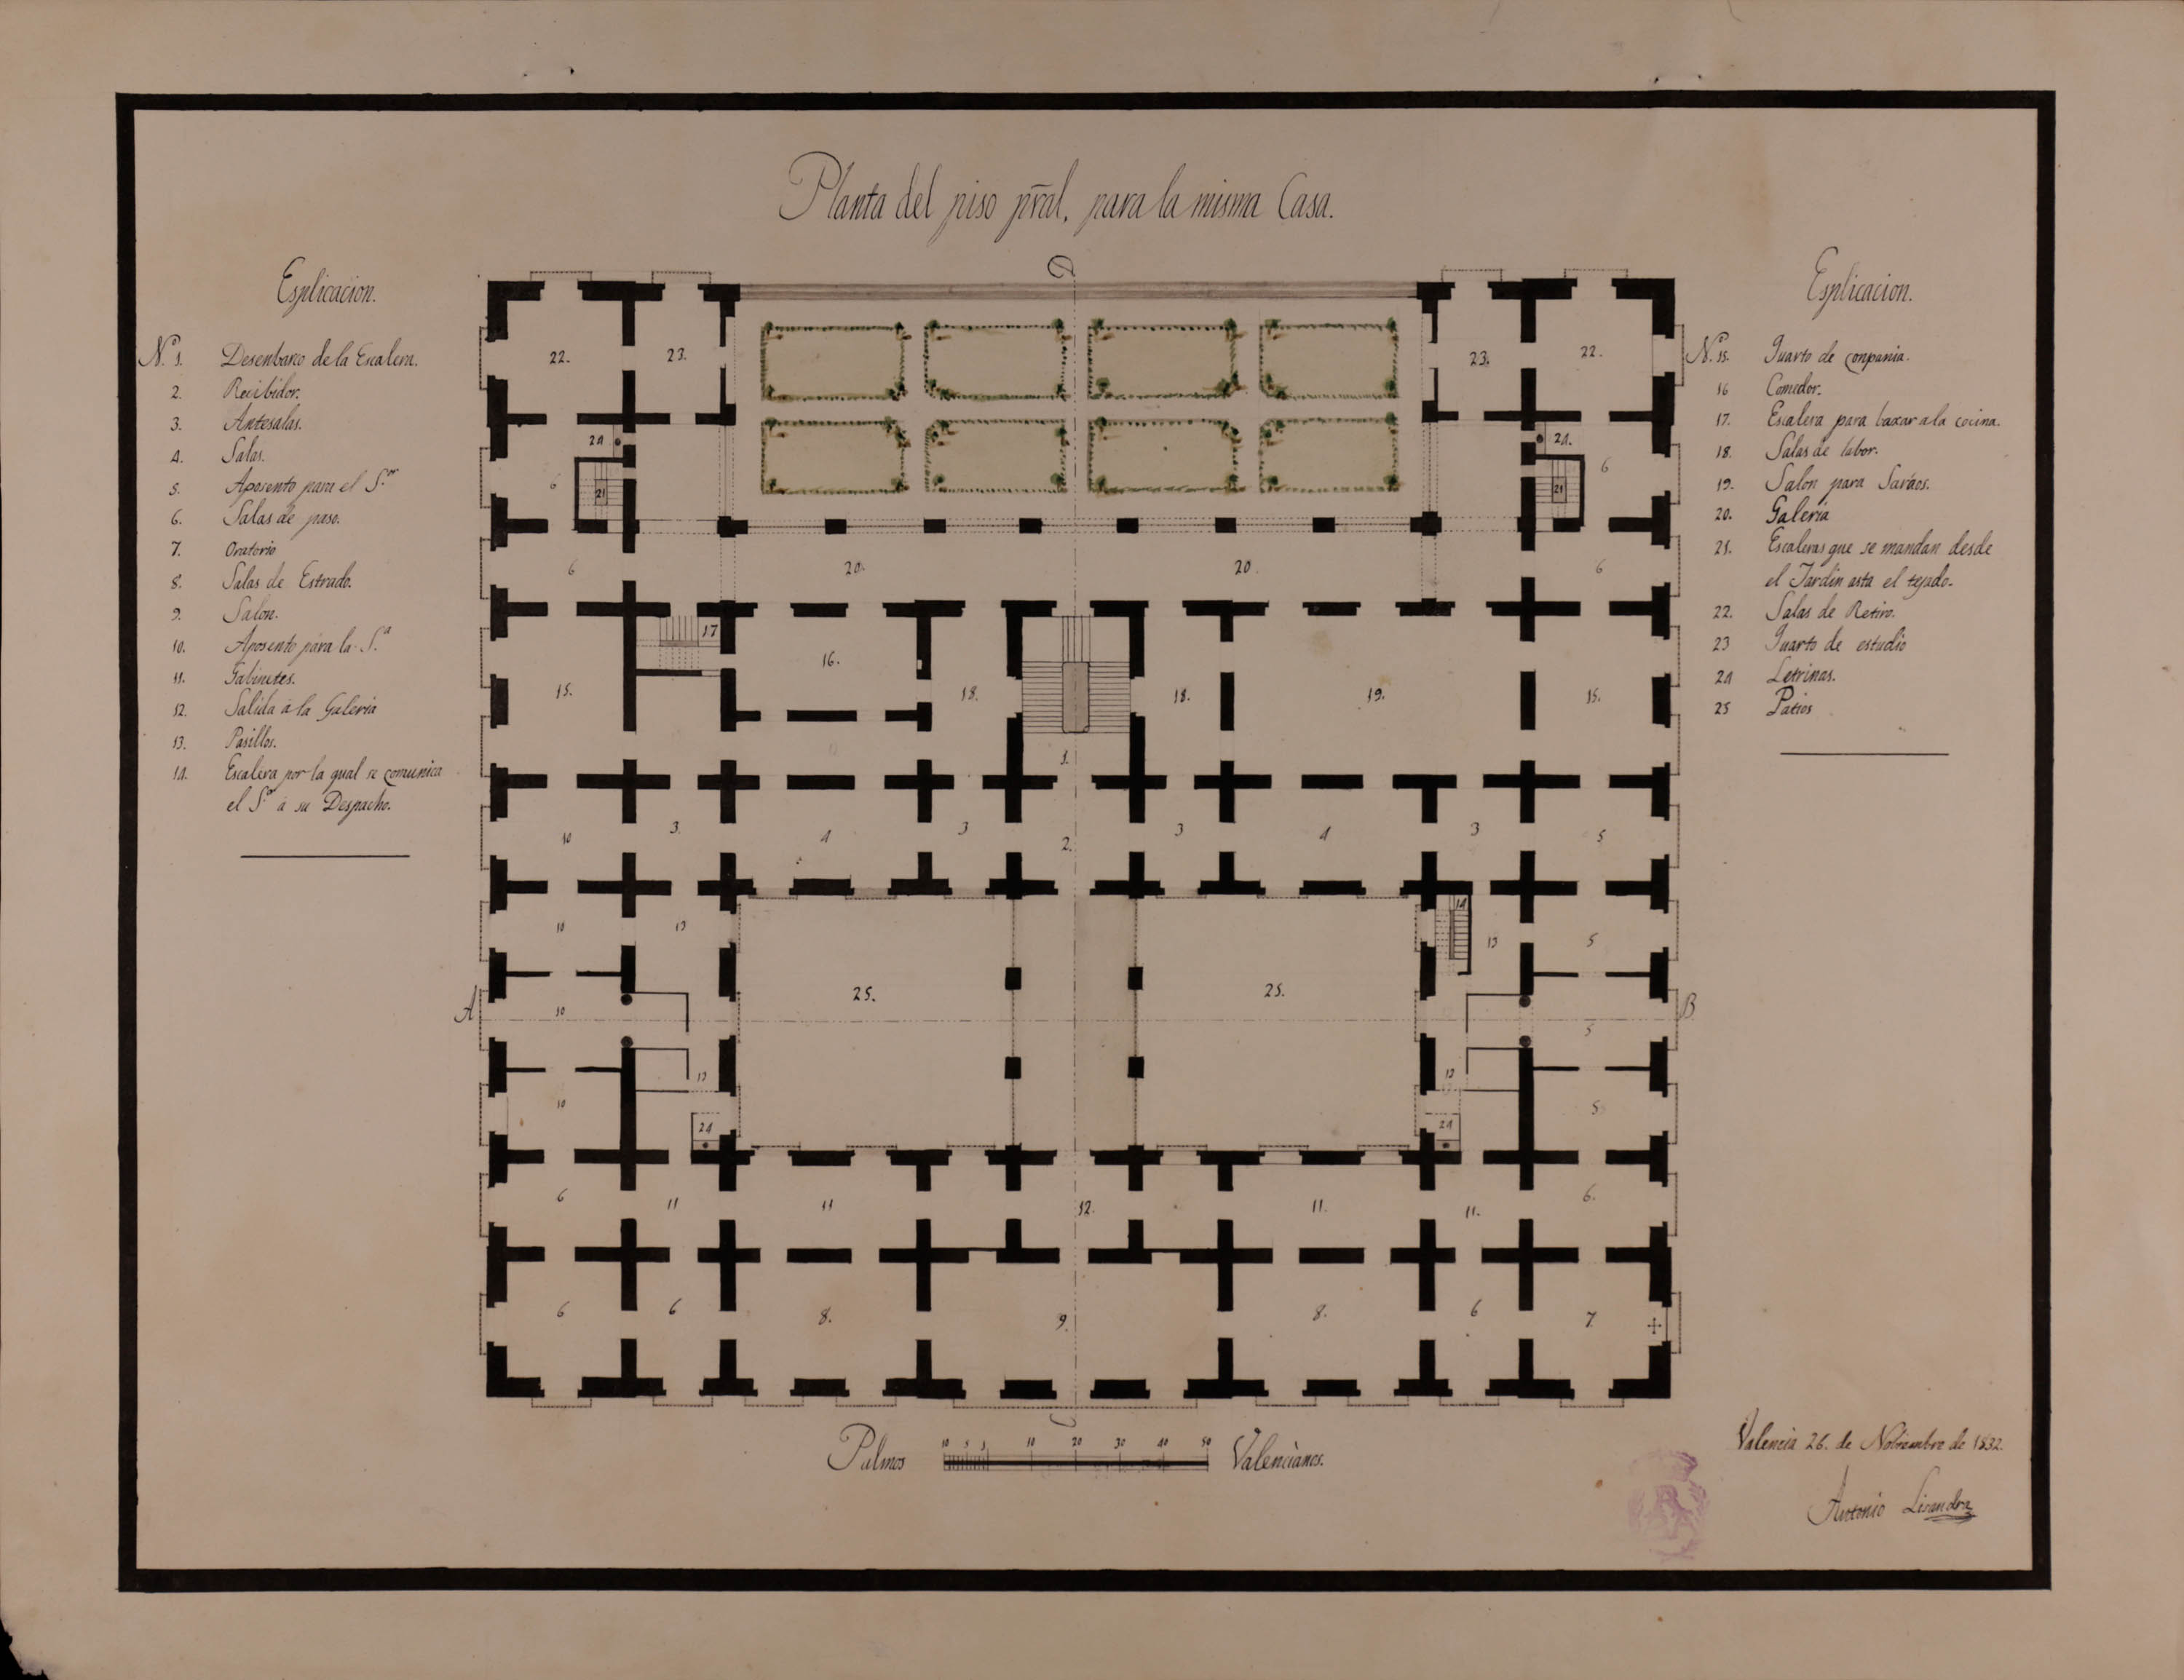 Planta del piso pr̄al, para la misma Casa.
Esplicacion.
N.º 1. Desenbarco de la Escalera.
2. Recibidor.
3. Antesalas.
4. Salas.
5. Aposento para el S.or
6. Salas de paso.
7. Oratorio
8. Salas de Estrado.
9. Salon.
10. Aposento para la S.a
11. Gabinetes.
12. Salida á la Galeria
13. Pasillos.
14. Escalera por la qual se comunica
el S.or á su Despacho.
Esplicacion.
N.º 15. Quarto de conpania.
16 Comedor.
17. Escalera para baxar a la cocina.
18. Salas de labor.
19. Salon para Saráos.
20. Galeria
21. Escaleras que se mandan desde
el Jardin asta el tejado.
22. Salas de Retiro.
23 Quarto de estudio
24 Letrinas.
25 Patios
D
22. 23. 23. 22.
24 24.
6 21 21 6
6 20. 20. 6
17
15. 16. 18. 18. 19. 15.
1.
10 3. 4 3 2. 3 4 3 5
14
10 13 13 5
25. 25.
A 10 5 B
13 13
10 5
24 24
6 11 11 12. 11. 11. 6.
6 6 8. 9. 8. 6 7.
C
Palmos 10 5 3 10 20 30 40 50 Valenciànos.
Valencia 26. de Nobiembre de 1832.
Antonio Lisandra